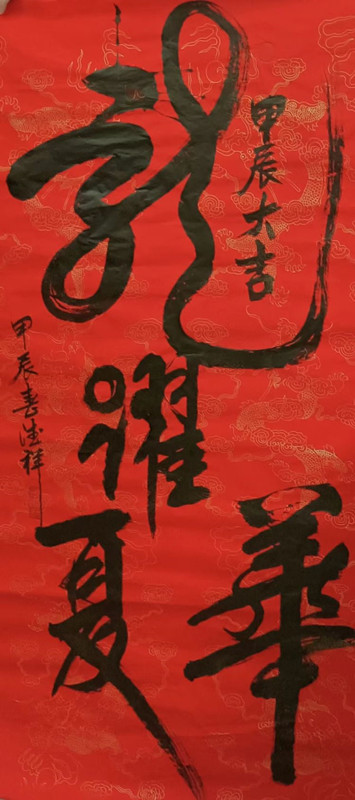 龍
躍
華夏
甲辰大吉
甲辰春祥